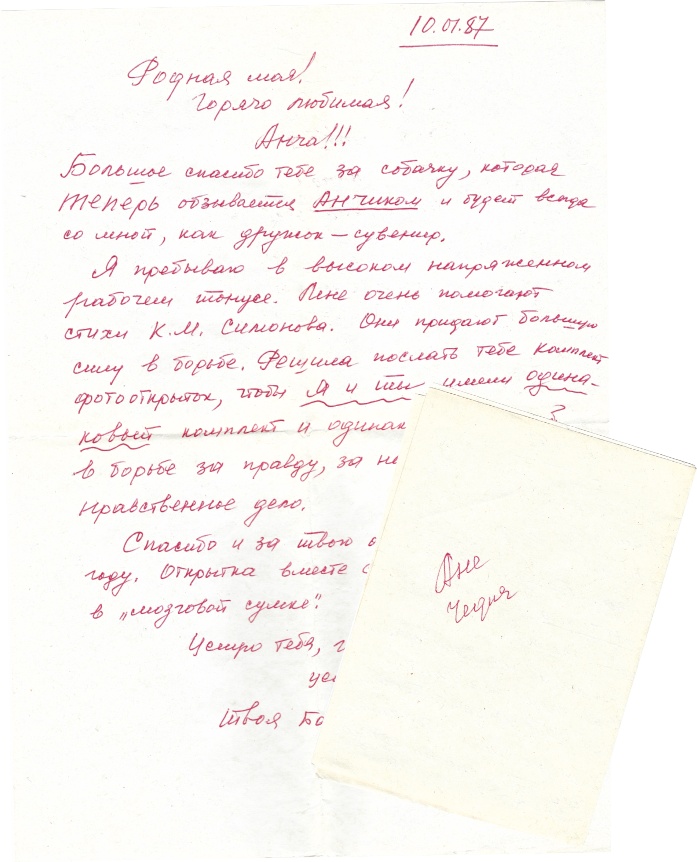 10.01.87
Родная моя!
Горячо любимая!
Анча!!!
Большое спасибо тебе за собачку, которая
теперь отзывается Анчиком и будет всегда
со мной, как дружок – сувенир.
Я пребываю в высоком напряженном
рабочем тонусе. Мне очень помогают
стихи К.М. Симонова. Они придают большую
силу в борьбе. Решила послать тебе комплект
фотооткрыток, чтобы Я и ты имели одина-
ковый комплект и одинак
в борьбе за правду, за не
нравственное дело.
Спасибо и за твою
году. Открытка вместе с
в „мозговой сумке".
Целую тебя,
Твоя Ба
Ане